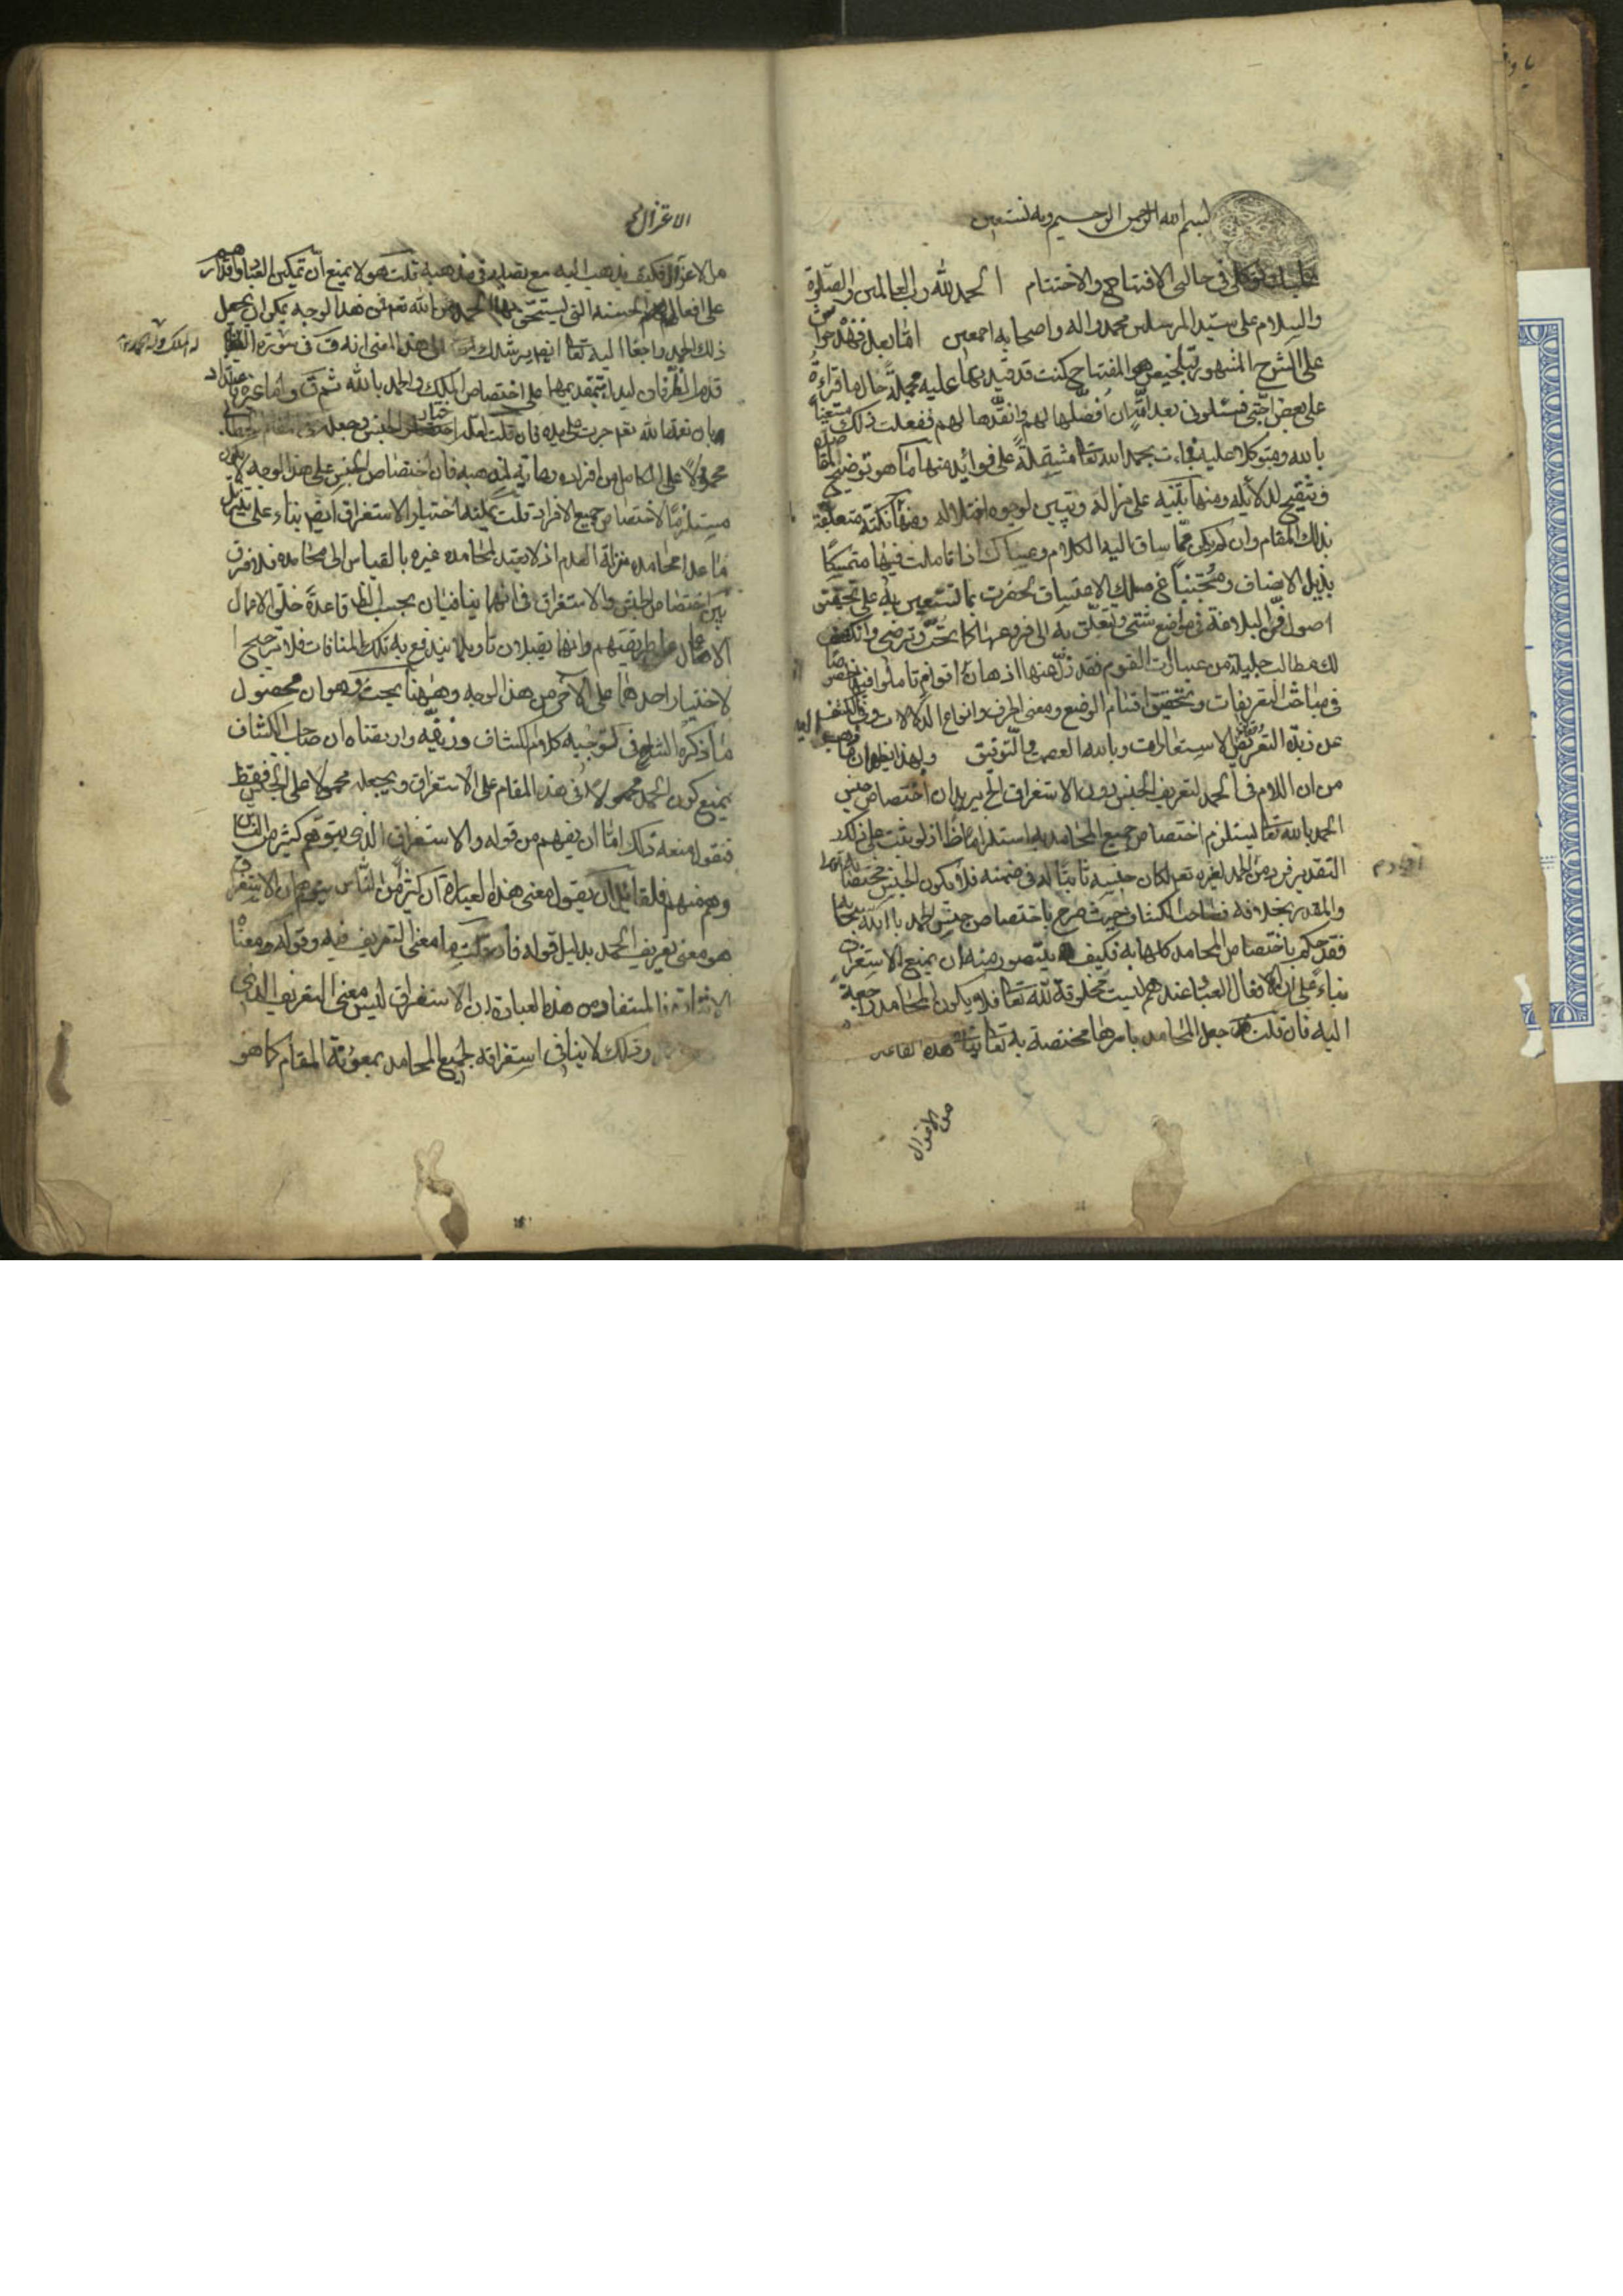 بسم الله الرحمن الرحيم وبه نستعين
عليك توكلى فى حالتى الافتتاح والاختتام الحمد لله رب العالمين والصلوة
والسلام على سيد المرسلين محمد واله واصحابه اجمعين اما بعد فهذه حواش
على الشرح المشهور لتلخيص المفتاح كنت قد قيدتها عليه مجملة حال ما قراءة
على بعض احبتى فسئلونى بعد ان افصلها لهم وانقدها لهم ففعلت ذلك مستعينا
بالله ومتوكلا عليه فجاءت بحمد الله تعا مشتملة على فوائد منها ما هو توضيح
وتنقيح لدلائله ومنها تنبيه على مزالة وتبيين لوجوه اختلاله ومنها نكتة متعلقة
بذلك المقام وان لم يكن مما ساق اليه الكلام وعساك اذا تاملت فيها متمسكا
بذيل الانصاف ومجتنبا عن مسلك الاعتساف ظفرت بما تستعين به على تحقيق
اصول فن البلاغة فى مواضع شتى وتتعلق به الى فروعها كما تحب وترضى وانكشف
لك مطالب جليلة من عبارات القوم فقد زل عنها اذهان اقوام تاملوا فيها خصوصا
فى مباحث التعريفات وتحقيق اقسام الوضع ومعنى الحرف وانواع الدلالات
الاستعارات وبالله العصمة والتوفيق
من ان اللام فى الحمد لتعريف الجنس دون الاستغراق الخ يريد ان اختصاص جنس
الحمد بالله تعا يستلزم اختصاص جميع المحامد به استلزاما ظاهرا اذ لو ثبت على ذلك
التقدير فرد من الحمد لغيره تعه لكان جنسه ثابتا له فى ضمنه فلا يكون الجنس مختصا به
والمقدر بخلافه فصاحب الكشاف حيث صرح باختصاص جنس الحمد بالله تعا
فقد حكم باختصاص المحامد كلها به فكيف يتصور منه ان يمنع الاستغراق
بناء على ان افعال العباد عندهم ليست مخلوقة لله تعا فلا يكون المحامد راجعة
اليه فان قلت جعل المحامد باسرها مختصة به تعا ينافى هذه القاعدة
من الاعتزال
الاعتزال
من الاعتزال فكيف يذهب اليه مع تصلبه فى مذهبه قلت هو لا يمنع ان تمكين العباد واقدارهم
على افعالهم الحسنة التى يستحق بها الحمد من الله تعه فمن هذا الوجه يمكن ان يجعل
ذلك الحمد راجعا اليه تعا ايضا يرشدك الى هذا المعنى انه قال فى سورة التغابن
قدم الظرفان ليدل بتقديمهما على اختصاص الملك والحمد بالله ثم قال واما حمد غيره فاعتداد
بان نعمة الله تعه جرت على يده فان قلت لعله اختار الجنس وجعله فى المقام الخطابى
محمولا على الكامل من افراده رعاية لمذهبه فان اختصاص الجنس على هذا الوجه لا يكون
مستلزما لاختصاص جميع الافراد قلت يمكنه اختيار الاستغراق ايضا بناء على تنزيل
ما عدا محامده منزلة العدم اذ لا يعتد بمحامد غيره بالقياس الى محامده فلا فرق
بين اختصاص الجنس والاستغراق فى انهما ينافيان بحسب الظاهر قاعدة خلق الاعمال
الاعمال على طريقتهم وانهما يقبلان تاويلا يندفع به تلك المنافات فلا ترجيح
لاختيار احدهما على الاخر من هذا الوجه وههنا بحث وهو ان محصول
ما ذكره الشارح فى توجيه كلام الكشاف وزيفه وارتضاه ان صاحب الكشاف
يمنع كون الحمد محمولا فى هذا المقام على الاستغراق ويجعله محمولا على الجنس فقط
فنقول منعه ذلك اما ان يفهم من قوله والاستغراق الذى يتوهم كثير من الناس
وهم منهم فلقائل ان يقول معنى هذه العبارة ان كثيرا من الناس يتوهم ان الاستغراق
هو معنى تعريف الحمد بدليل قوله فان قلت ما معنى التعريف فيه وقوله ومعناه
الاشارة فالمستفاد من هذه العبارة ان الاستغراق ليس معنى التعريف الذى
وذلك لا ينافى استغراقه لجميع المحامد بمعونة المقام كما هو